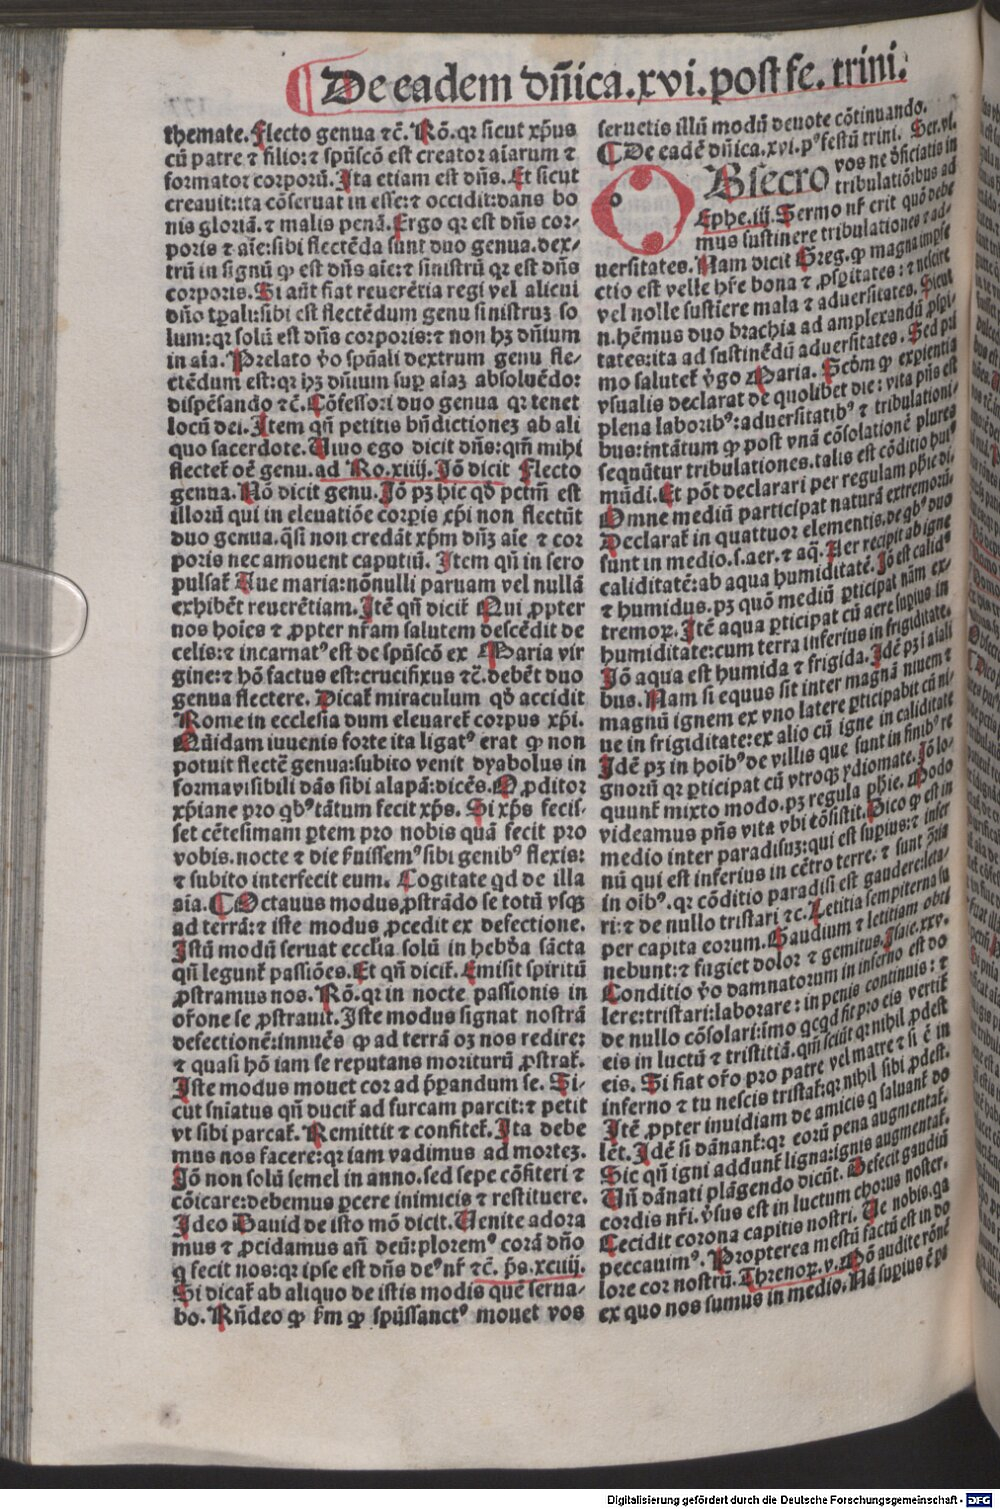 De eadem dn̄ica.xvi.post fe. trini.
themate. Flecto genua ⁊c̄. Rō. qꝛ sicut xp̄us
cū patre ⁊ filio: ⁊ spūscō est creator aīarum ⁊
formator corporū. Ita etiam est dn̄s. Et sicut
creauit: ita cōseruat in esse: ⁊ occidit: dans bo
nis gloriā. ⁊ malis penā. Ergo qꝛ est dn̄s cor-
poris ⁊ aīe: sibi flectēda sunt duo genua. dex-
trū in signū ꝙ est dn̄s aīe: ⁊ sinistrū qꝛ est dn̄s
corporis. Si aūt fiat reuerētia regi vel alicui
dn̄o tp̄ali: sibi est flectēdum genu sinistruꝫ so
lum: qꝛ solū est dn̄s corporis: ⁊ non hꝫ dn̄ium
in aīa. Prelato v̄o spūali dextrum genu fle-
ctēdum est: qꝛ hꝫ dn̄ium sup̱ aīaꝫ absoluēdo:
dispēsando ⁊c̄. Cōfessori duo genua qꝛ tenet
locū dei. Item qn̄ petitis bn̄dictioneꝫ ab ali
quo sacerdote. Uiuo ego dicit dn̄s: qm̄ mihi
flectet̄ oē genu. ad Ro.xiiij. Iō dicit Flecto
genua. Nō dicit genu. Iō pꝫ hic qd̄ pctm̄ est
illorū qui in eleuatiōe corꝑis xp̄i non flectūt
duo genua. q̄si non credāt xp̄m dn̄ꝫ aīe ⁊ cor
poris nec amouent caputiū. Item qn̄ in sero
pulsat̄ Aue maria: nōnulli paruam vel nullā
exhibēt reuerētiam. Itē qn̄ dicit̄ Qui ꝓpter
nos hoīes ⁊ ꝓpter nr̄am salutem descēdit de
celis: ⁊ incarnatꝰ est de spūscō ex Maria vir
gine: ⁊ hō factus est: crucifixus ⁊c̄. debēt duo
genua flectere. Dicat̄ miraculum qd̄ accidit
Rome in ecclesia dum eleuaret̄ corpus xp̄i.
Quidam iuuenis forte ita ligatꝰ erat ꝙ non
potuit flectē genua: subito venit dyabolus in
forma visibili dās sibi alapā: dicēs. O ꝓditor
xp̄iane pro qbꝰ tātum fecit xp̄s. Si xp̄s fecis-
set cētesimam ꝑtem pro nobis quā fecit pro
vobis. nocte ⁊ die fuissemꝰ sibi genibꝰ flexis:
⁊ subito interfecit eum. Cogitate qd de illa
aīa. ¶ Octauus modus ꝓstrādo se totū vsqꝫ
ad terrā: ⁊ iste modus ꝓcedit ex defectione.
Istū modū seruat ecclīa solū in hebd̄a sācta
qn̄ legunt̄ passiōes. Et qn̄ dicit̄. Emisit spiritū
ꝓstramus nos. Rō. qꝛ in nocte passionis in
or̄one se ꝓstrauit. Iste modus signat nostrā
defectionē: innuēs ꝙ ad terrā oꝫ nos redire:
⁊ quasi hō iam se reputans moriturū ꝓstrat̄.
Iste modus mouet cor ad p̄ꝑandum se. Si-
cut snīatus qn̄ ducit̄ ad furcam parcit: ⁊ petit
vt sibi parcat̄. Remittit ⁊ confitet̄. Ita debe
mus nos facere: qꝛ iam vadimus ad morteꝫ.
Iō non solū semel in anno. sed sepe cōfiteri ⁊
cōicare: debemus ꝑcere inimicis ⁊ restituere.
Ideo Dauid de isto mō dicit. Uenite adora
mus ⁊ ꝓcidamus an̄ deū: ploremꝰ corā dn̄o
q fecit nos: qꝛ ipse est dn̄s deꝰ nr̄ ⁊c̄. ps.xciiij.
Si dicat̄ ab aliquo de istis modis quē serua-
bo. Rn̄deo ꝙ ꝙ spūssanctꝰ mouet vos
seruetis illū modū deuote cōtinuando.
¶ De eadē dn̄ica.xvi.pꝰ festū trini. Ser.vi.
OBsecro vos ne dficiatis in
tribulatiōibus
Ephe.iij. Sermo nr̄ erit quō debe
mus sustinere tribulationes ⁊ ad-
uersitates. Nam dicit Greg. ꝙ magna impfe
ctio est velle hr̄e bona ⁊ ꝓsꝑitates: ⁊ nescire
vel nolle sustīere mala ⁊ aduersitates. Sicut
n. hēmus duo brachia ad amplexandū ꝓsꝑi-
tates: ita ad sustinēdū aduersitates. Sed pri
mo salutet̄ v̄go Maria. Scdm̄ ꝙ expientia
vsualis declarat de quolibet die: vita pn̄s est
plena laboribꝰ: aduersitatibꝰ ⁊ tribulationi-
bus: intātum ꝙ post vnā cōsolationē plures
sequūtur tribulationes. talis est cōditio huiꝰ
mūdi. Et pōt declarari per regulam phīe di.
Omne mediū participat naturā extremorū.
Declarat̄ in quattuor elementis. de qbꝰ duo
sunt in medio. s. aer. ⁊ aq̄. Aer recipit ab igne
caliditatē: ab aqua humiditatē. Iō est calidꝰ
⁊ humidus. pꝫ quō mediū ꝑticipat nām ex-
tremoꝝ. Itē aqua ꝑticipat cū aere suꝑius in
humiditate: cum terra inferius in frigiditate.
Iō aqua est humida ⁊ frigida. Idē pꝫ i aliali
bus. Nam si equus sit inter magnā niuem ⁊
magnū ignem ex vno latere ꝑticipabit cū ni-
ue in frigiditate: ex alio cū igne in caliditate
Idē pꝫ in hoībꝰ de villis que sunt in finibꝰ re
gnorū qꝛ ꝑticipat cū vtroqꝫ ydiomate. Iō lo-
quunt̄ mixto modo. pꝫ regula phīe. Modo
videamus pn̄s vita vbi cōsistit. Dico ꝙ est in
medio inter paradisuꝫ: qui est suꝑius: ⁊ infer
nū qui est inferius in cētro terre. ⁊ sunt
in oībꝰ. qꝛ cōditio paradisi est gaudere: leta-
ri: ⁊ de nullo tristari ⁊c. Letitia sempiterna su
per capita eorum. Gaudium ⁊ letitiam obti
nebunt: ⁊ fugiet dolor ⁊ gemitus. Isaie.xxv.
Conditio v̄o damnatorum in inferno est do
lere: tristari: laborare: in penis continuis: ⁊
de nullo cōsolari: īmo qcqd fit pro eis vertit̄
eis in luctū ⁊ tristitiā. qm̄ sciūt qꝛ nihil ꝓdest
eis. Si fiat or̄o pro patre vel matre ⁊ si ē in
inferno ⁊ tu nescis tristat̄: qꝛ nihil sibi ꝓdest.
Itē ꝓpter inuidiam de amicis q saluant̄ do
lēt. Idē si dānant̄: qꝛ eorū pena augmentat̄.
Sic qn̄ igni addunt̄ ligna: ignis augmentat̄.
Un̄ dānati plāgendo dicūt. Defecit gaudiū
cordis nr̄i. v̄sus est in luctum chorus noster.
Cecidit corona capitis nostri. Ue nobis. qa
peccauimꝰ. Propterea mestū factū est in do
lore cor nostrū. Threnoꝝ.v. Mō audite rōnē
ex quo nos sumus in medio. Nā suꝑius ē pa
Digitalisierung gefördert durch die Deutsche Forschungsgemeinschaft - DFG